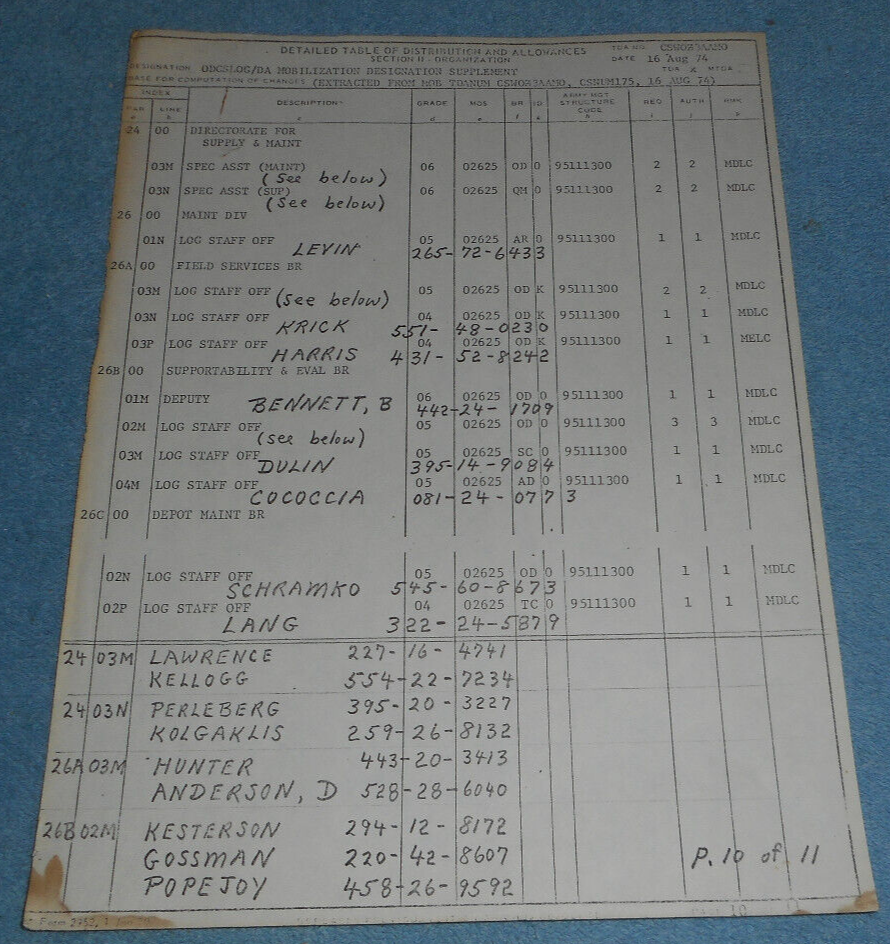 DETAILED TABLE OF DISTRIBUTION AND ALLOWANCES
SECTION II - ORGANIZATION
TDA NO. CSW0B3AAMO
DATE 16 Aug 74
DESIGNATION ODCSLOG/DA MOBILIZATION DESIGNATION SUPPLEMENT TDA X MTDA
BASE FOR COMPUTATION OF CHANGES (EXTRACTED FROM MOB TDANUM CSW0B3AAMO, CSNUM175, 16 AUG 74)
INDEX
PAR LINE DESCRIPTION GRADE MOS BR ID ARMY MGT STRUCTURE CODE REQ AUTH RMK
24 00 DIRECTORATE FOR
SUPPLY & MAINT
03M SPEC ASST (MAINT) 06 02625 OD 0 95111300 2 2 MDLC
(See below)
03N SPEC ASST (SUP) 06 02625 QM 0 95111300 2 2 MDLC
(See below)
26 00 MAINT DIV
01N LOG STAFF OFF 05 02625 AR 0 95111300 1 1 MDLC
LEVIN 265-72-6433
26A 00 FIELD SERVICES BR
03M LOG STAFF OFF 05 02625 OD K 95111300 2 2 MDLC
(see below)
03N LOG STAFF OFF 04 02625 OD K 95111300 1 1 MDLC
KRICK 551-48-0230
03P LOG STAFF OFF 04 02625 OD K 95111300 1 1 MELC
HARRIS 431-52-8242
26B 00 SUPPORTABILITY & EVAL BR
01M DEPUTY 06 02625 OD 0 95111300 1 1 MDLC
BENNETT, B 442-24-1709
02M LOG STAFF OFF 05 02625 OD 0 95111300 3 3 MDLC
(see below)
03M LOG STAFF OFF 05 02625 SC 0 95111300 1 1 MDLC
DULIN 395-14-9084
04M LOG STAFF OFF 05 02625 AD 0 95111300 1 1 MDLC
COCOCCIA 081-24-0773
26C 00 DEPOT MAINT BR
02N LOG STAFF OFF 05 02625 OD 0 95111300 1 1 MDLC
SCHRAMKO 545-60-8673
02P LOG STAFF OFF 04 02625 TC 0 95111300 1 1 MDLC
LANG 322-24-5879
24 03M LAWRENCE 227-16-4741
KELLOGG 554-22-7234
24 03N PERLEBERG 395-20-3227
KOLGAKLIS 259-26-8132
26A 03M HUNTER 443-20-3413
ANDERSON, D 528-28-6040
26B 02M KESTERSON 294-12-8172
GOSSMAN 220-42-8607 P. 10 of 11
POPEJOY 458-26-9592